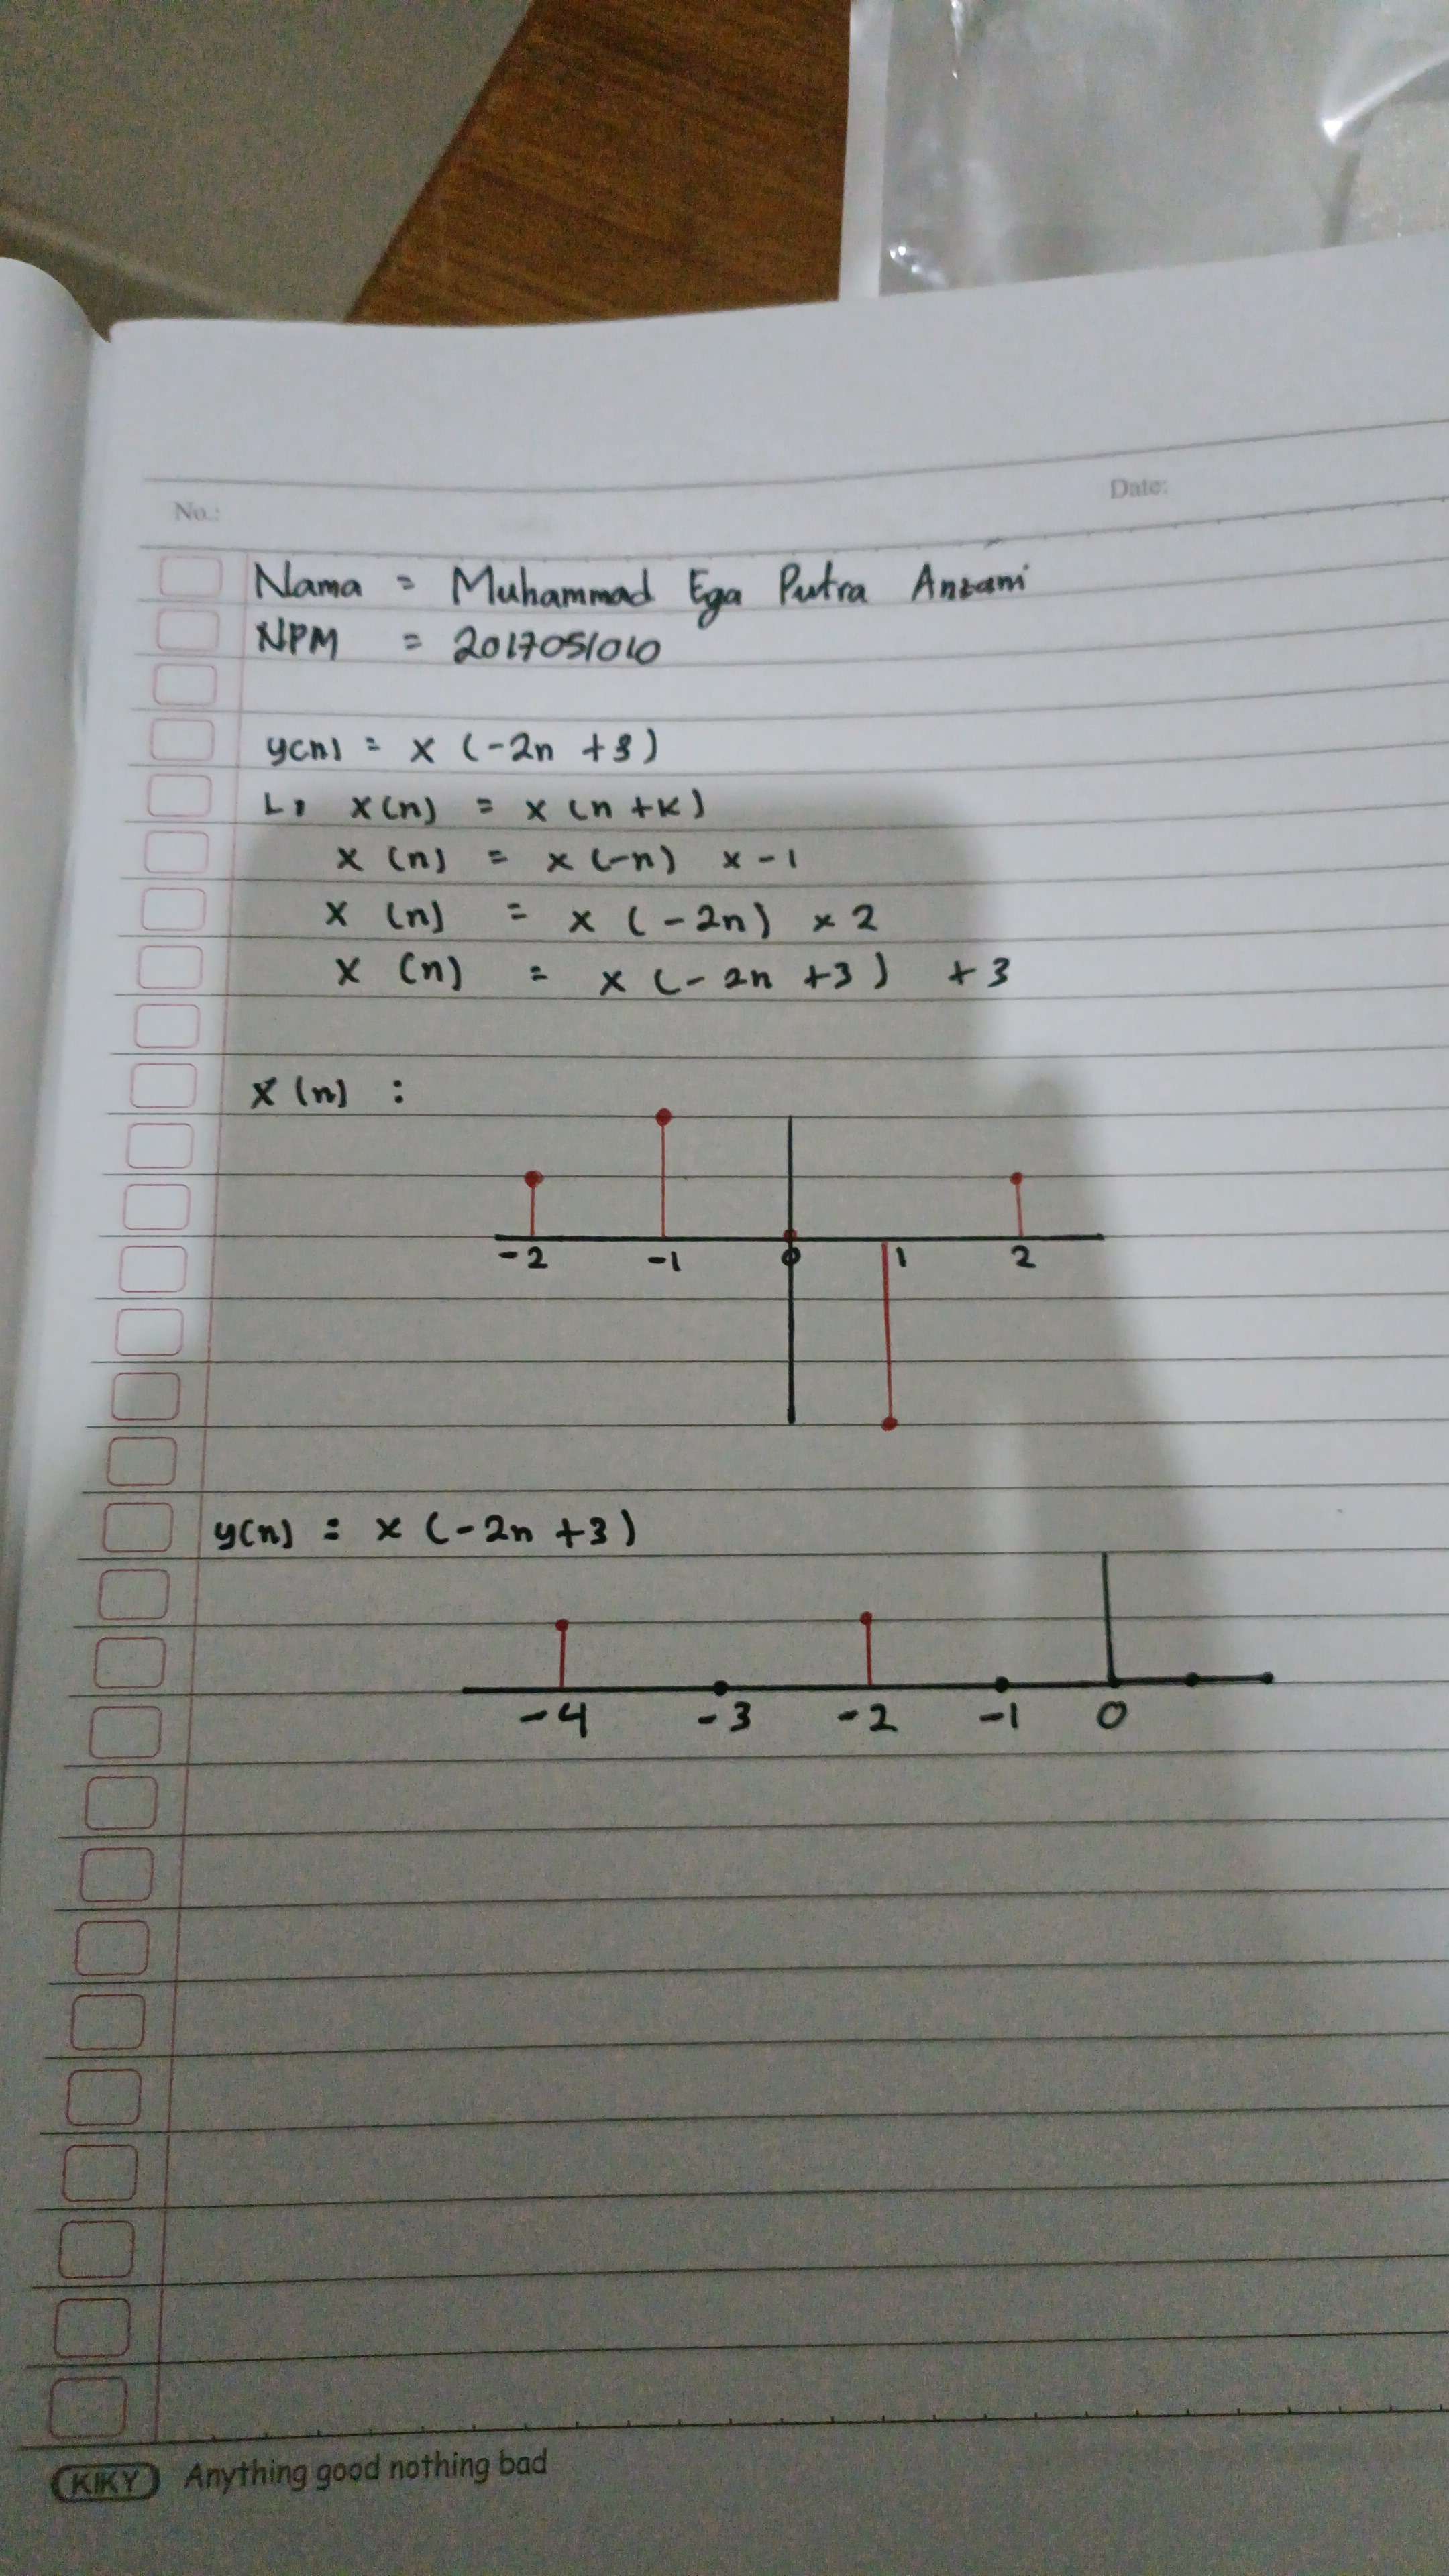 No.:
Date:
Nama = Muhammad Ega Putra Anzami
NPM = 2017051010
y(n) = x (-2n +3)
L, x(n) = x (n +k)
x (n) = x (-n) x -1
x (n) = x (-2n) x 2
x (n) = x (-2n +3) +3
x (n) :
-2 -1 0 1 2
y(n) = x (-2n +3)
-4 -3 -2 -1 0
KIKY Anything good nothing bad